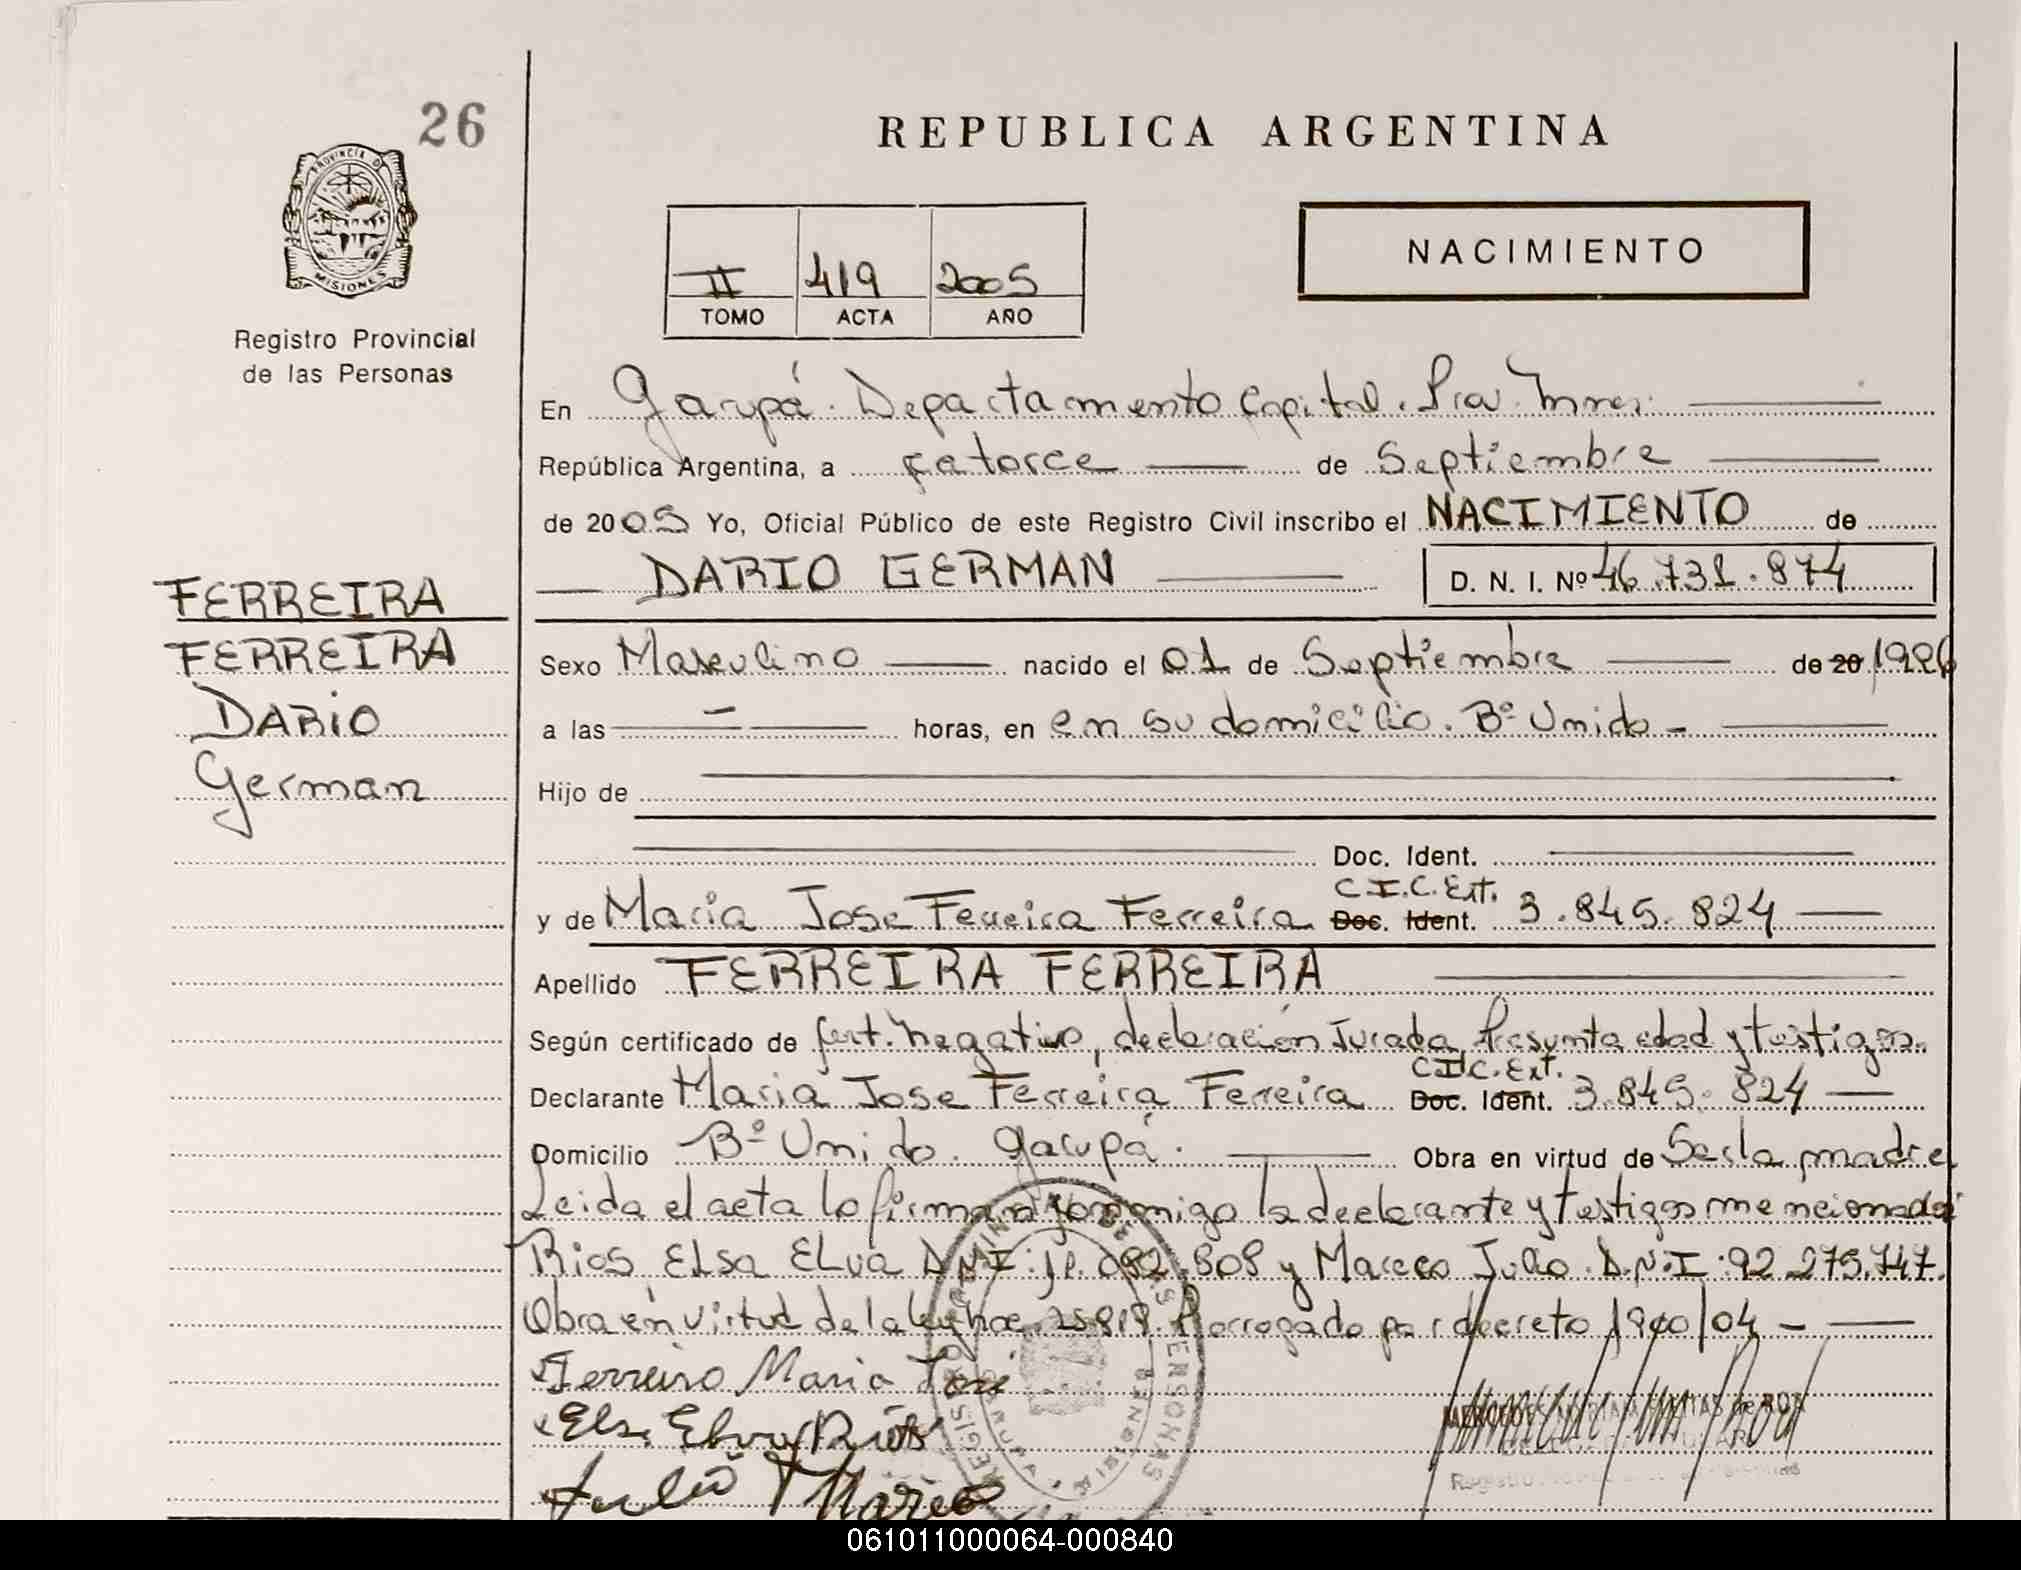 26
REPUBLICA ARGENTINA
PROVINCIA D
MISIONES
Registro Provincial
de las Personas
II 419 2005
TOMO ACTA AÑO
NACIMIENTO
En Garupá. Departamento Capital. Prov. Mnes.
República Argentina, a catorce de Septiembre
de 2005 Yo, Oficial Público de este Registro Civil inscribo el NACIMIENTO de
DARIO GERMAN D. N. I. Nº 46.731.874
FERREIRA
FERREIRA
DARIO
German
Sexo Masculino nacido el 01 de Septiembre de 20 /1996
a las — horas, en en su domicilio. Bº Unido -
Hijo de
Doc. Ident.
C.I.C. Ext.
y de Maria Jose Ferreira Ferreira Doc. Ident. 3.845.824
Apellido FERREIRA FERREIRA
Según certificado de Cert. negativo, declaración Jurada, Presunta edad y testigos.
C.I.C. Ext.
Declarante Maria Jose Ferreira Ferreira Doc. Ident. 3.845.824
Domicilio Bº Unido. Garupá. Obra en virtud de Ser la madre
Leida el acta la firman conmigo la declarante y testigos mencionados
Rios Elsa Elva D.N.I: 082.808 y Mareco Julio. D.N.I: 92.275.747.
Obra en virtud de la ley nro 25819 Prorrogado por decreto 1900/04 -
Ferreira Maria José
Elsa Elva Rios
Julio Mareco
PERSONAS
GARUPA
MISIONES
061011000064-000840